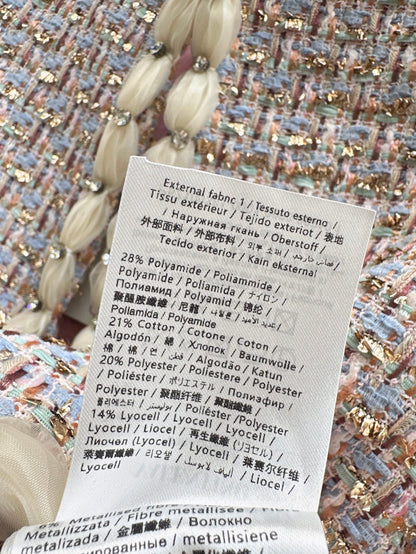 External fabric 1 / Tessuto esterno /
Tissu extérieur / Tejido exterior / 表地
/ Наружная ткань / Oberstoff /
外部面料 / 外部布料 / 외부 소재 / قماش خارجي /
Tecido exterior / Kain eksternal
28% Polyamide / Poliammide /
Polyamide / Poliamida / ナイロン /
Полиамид / Polyamid / 锦纶 /
聚醯胺纖維 / 尼龍 /
Poliamida / Polyamide
21% Cotton / Cotone / Coton /
Algodón / 綿 / Хлопок / Baumwolle /
棉 / 棉 / 면 / قطن / Algodão / Katun
20% Polyester / Poliestere / Polyester
/ Poliéster / ポリエステル / Полиэфир /
Polyester / 聚酯纤维 / 聚酯纖維 /
폴리에스터 / بوليستر / Poliéster /Polyester
14% Lyocell / Lyocell / Lyocell /
Lyocell / Liocel / 再生繊維 (リヨセル) /
Лиоцел (Lyocell) / Lyocell / 莱赛尔纤维
/ 萊賽爾纖維 / 리오셀 / ألياف لايوسل / Liocel /
Lyocell
6% Metallised fibre
Metallizzata / Fibre métallisée / Fibra
metalizada / 金属繊維 / Волокно
/ metallisiene